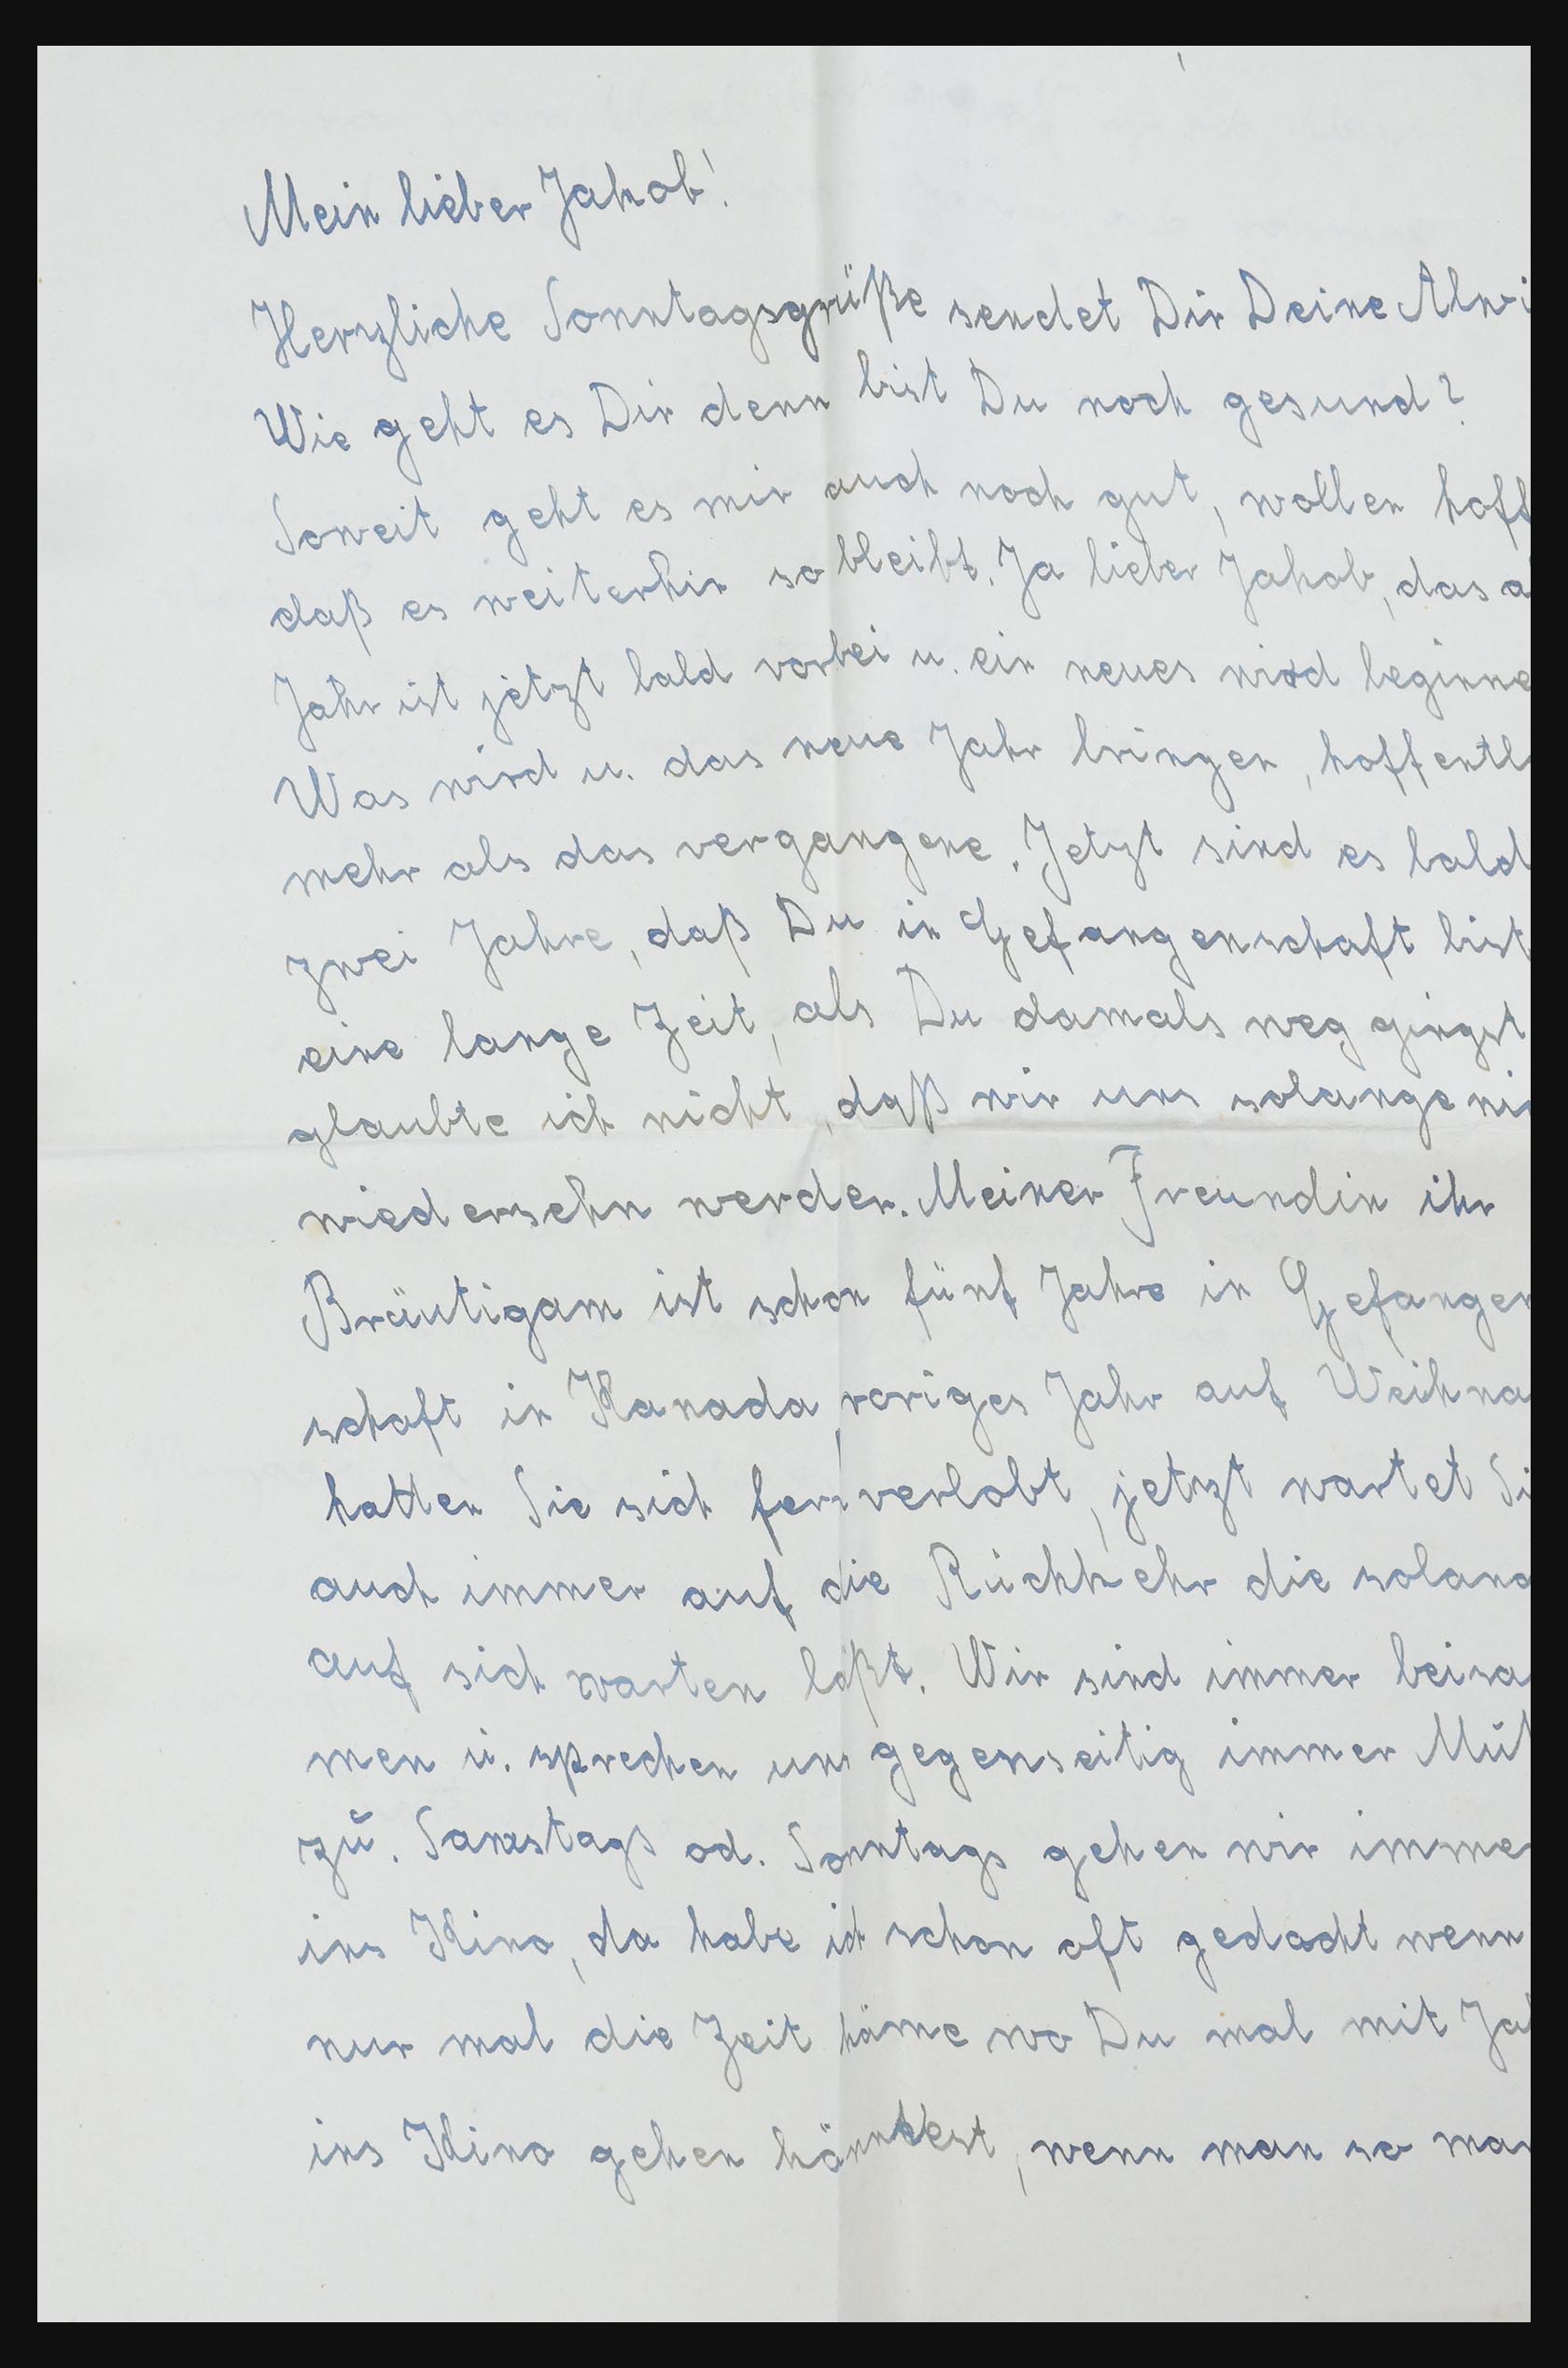 Mein lieber Jakob!
Herzliche Sonntagsgrüße sendet Dir Deine Alwi
Wie geht es Dir denn bist Du noch gesund?
Soweit geht es mir auch noch gut, wollen hoff
daß es weiterhin so bleibt. Ja lieber Jakob, das a
Jahr ist jetzt bald vorbei u. ein neues wird beginne
Was wird u. das neue Jahr bringen, hoffentl
mehr als das vergangene. Jetzt sind es bald
zwei Jahre, daß Du in Gefangenschaft bist
eine lange Zeit, als Du damals weg gingst
glaubte ich nicht, daß wir uns solange ni
wiedersehn werden. Meiner Freundin ihr
Bräutigam ist schon fünf Jahre in Gefangen
schaft in Kanada, voriges Jahr auf Weihna
hatten Sie sich fernverlobt, jetzt wartet Si
auch immer auf die Rückkehr die solang
auf sich warten läßt. Wir sind immer beisa
men u. sprechen uns gegenseitig immer Mut
zu. Samstags od. Sonntags gehen wir imme
ins Kino, da habe ich schon oft gedacht wenn
nur mal die Zeit käme wo Du mal mit Ja
ins Kino gehen könntest, wenn man so man